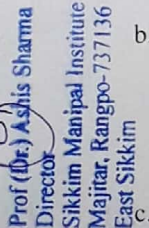 Prof (Dr.) Ashis Sharma
Director
Sikkim Manipal Institute
Majitar, Rangpo-737136
East Sikkim
b
c.